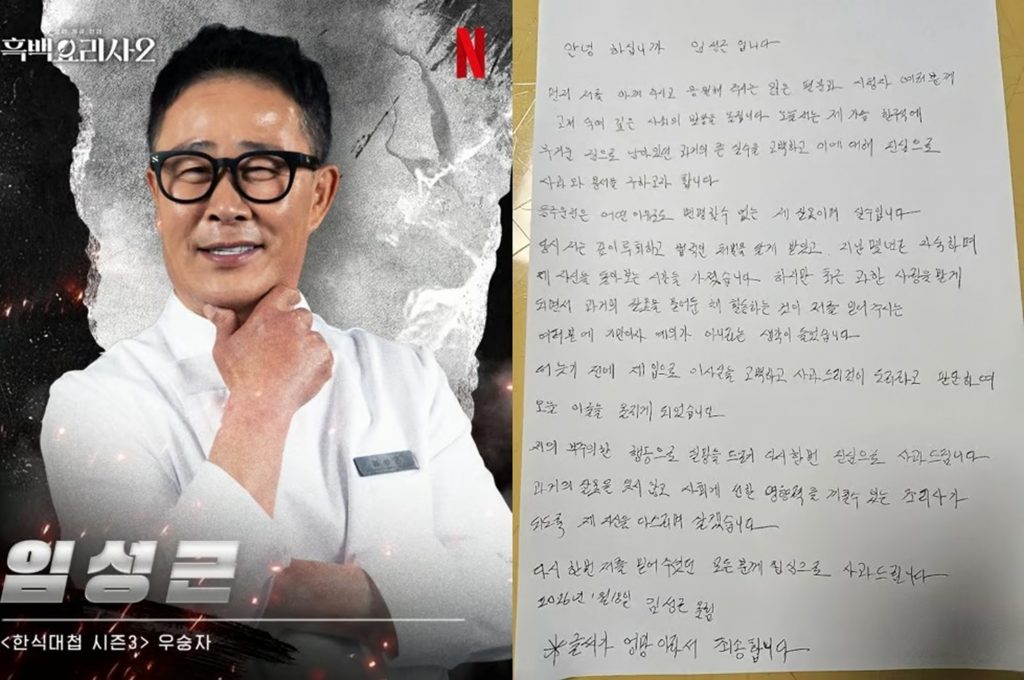 흑백요리사2
N
임성근
<한식대첩 시즌3> 우승자
안녕 하십니까 임성근 입니다
먼저 저를 아껴 주시고 응원해 주시는 많은 팬분과 시청자 여러분께
고개 숙여 깊은 사죄의 말씀을 드립니다 오늘 저는 제 가슴 한구석에
무거운 짐으로 남아있던 과거의 큰 실수을 고백하고 이에 대해 진심으로
사과와 용서를 구하고자 합니다
음주운전은 어떤 이유로도 변명할수 없는 제 잘못이며 실수입니다
당시 저는 깊이 후회하고 법적인 처벌을 달게 받았고 지난 몇년간 자숙하며
제 자신을 돌아보는 시간을 가졌습니다 하지만 최근 과한 사랑을 받게
되면서 과거의 잘못을 묻어둔 채 활동하는 것이 저를 믿어 주시는
여러분에 기만이자 예의가 아니라는 생각이 들었습니다
더 늦기 전에 제 입으로 이사실을 고백하고 사과드리것이 도리라고 판단하여
오늘 이글을 올리게 되었습니다
저의 부주의한 행동으로 실망을 드려 다시한번 진심으로 사과드립니다
과거의 잘못을 잊지 않고 사회에 선한 영향력을 끼칠수 있는 조리사가
되도록 제 자신을 다스리며 살겠습니다
다시 한번 저를 믿어 주셨던 모든분께 진심으로 사과드립니다
2026년 1월18일 임성근 올림
※글씨가 엉망 이라서 죄송합니다